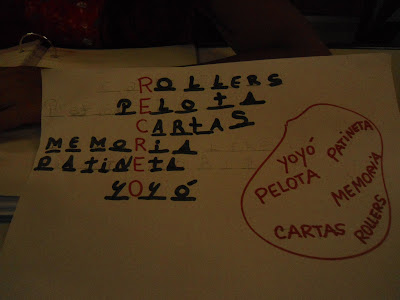 ROLLERS
PELOTA
CARTAS
MEMORIA
PATINETA
YOYÓ
yoyó
PATINETA
PELOTA
MEMORIA
CARTAS
ROLLERS